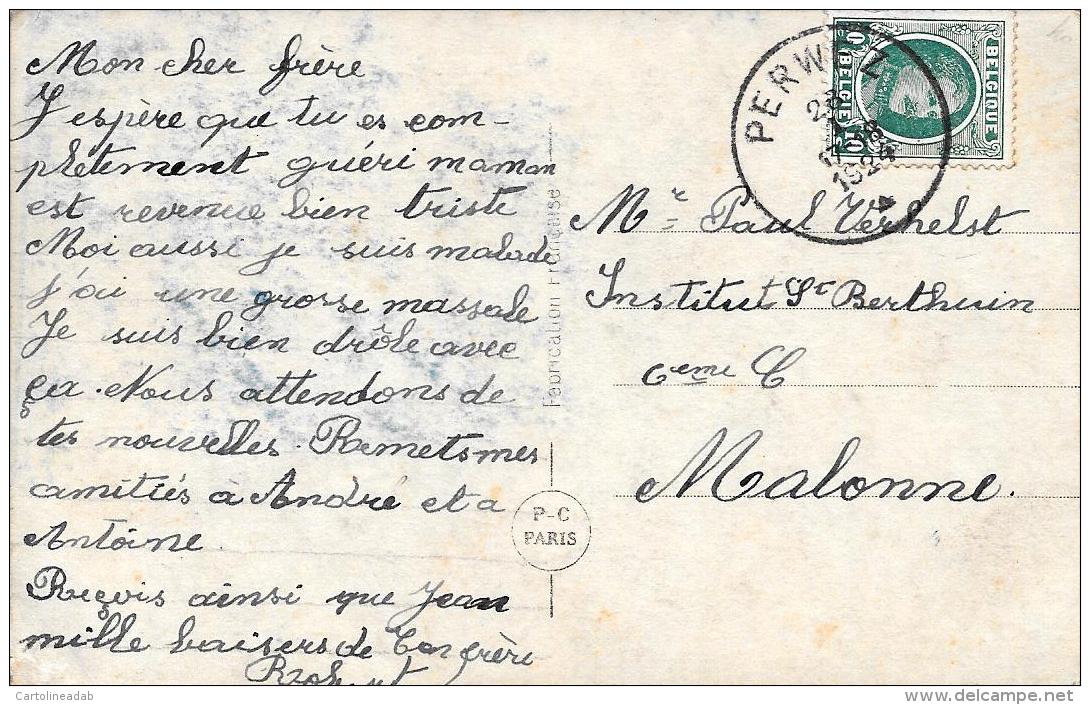 Mon cher frère
J'espère que tu es com-
plètement guéri maman
est revenue bien triste
Moi aussi je suis malade
j'ai une grosse
Je suis bien drôle avec
ça. Nous attendons de
tes nouvelles. Remets mes
amitiés à André et a
Antoine.
Reçois ainsi que Jean
mille baisers de ton frère
Fabrication Française
P-C
PARIS
BELGIE BELGIQUE
10
PERWEZ
1924
Mr Paul Verhelst
Institut St Berthuin
6eme C
Malonne.
Cartolineadab
delcampe.net